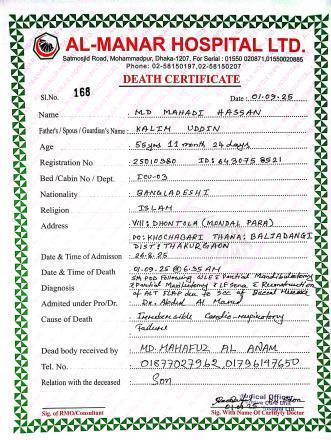 AL-MANAR HOSPITAL LTD.
Satmosjid Road, Mohammadpur, Dhaka-1207. For Serial : 01550 020871,01550020885
Phone: 02-58150197,02-58150207
DEATH CERTIFICATE
Sl.No. 168 Date : 01.09.25
Name MD MAHADI HASSAN
Father's / Spous / Guardian's Name KALIM UDDIN
Age 55yrs 11 month 24 days
Registration No 25010380 ID: 6430758521
Bed/Cabin No / Dept. ICU-03
Nationality BANGLADESHI
Religion ISLAM
Address Vill: DHONTOLA (MONDAL PARA)
PO: KHOCHABARI THANA: BALIADANGI
DIST: THAKURGAON
Date & Time of Admission 26.8.25
Date & Time of Death 01.09.25 @ 6:35 AM
Diagnosis POD Following WLE Partial Mandibulectomy
Partial Maxillectomy Reconstruction
due to of Buccal
Admitted under Pro/Dr. Dr. Abdul Al Mamud
Cause of Death Irreversible Cardio-respiratory
Failure
Dead body received by MD. MAHAFUZ AL ANAM
Tel. No. 01877027962, 01796147650
Relation with the deceased Son
Medical Officer
01.09.25
Sig. of RMO/Consultant Sig. With Name Of Certify Doctor